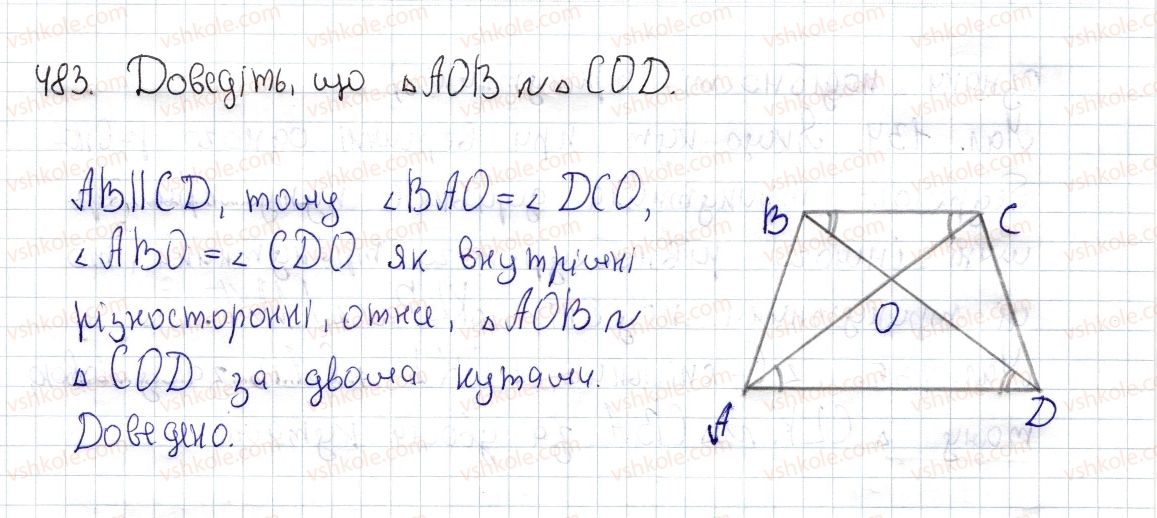 483. Доведіть, що △AOB ~ △COD.
AB||CD, тому ∠BAO = ∠DCO,
∠ABO = ∠CDO як внутрішні
різносторонні, отже, △AOB ~
△COD за двома кутами.
Доведено.
B
C
O
A
D
vshkole.com